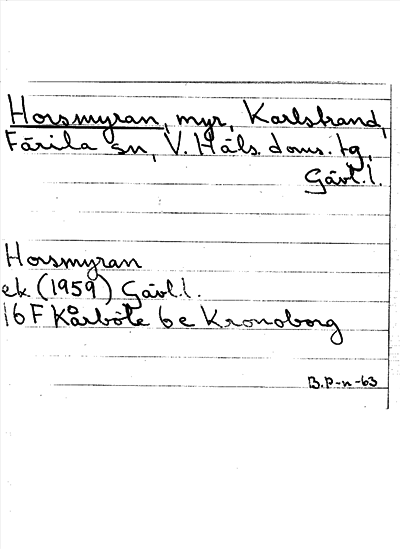 Horsmyran, myr, Karlstrand,
Färila sn, V. Häls. doms. tg,
Gävl. l.
Horsmyran
ek (1959) Gävl. l.
16 F Kårböle 6 e Kronoborg
B.P-n-63